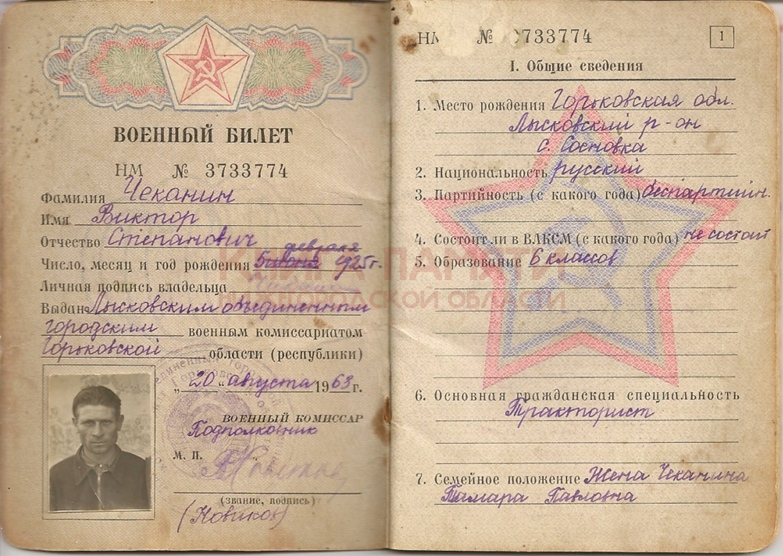 ВОЕННЫЙ БИЛЕТ
НМ № 3733774
Фамилия Чеканин
Имя Виктор
Отчество Степанович
февраля
Число, месяц и год рождения 5 июня 1925г.
Личная подпись владельца
Выдан Лысковским объединенным
городским военным комиссариатом
Горьковской области (республики)
„20“ августа 1963 г.
ВОЕННЫЙ КОМИССАР
Подполковник
М. П.
(звание, подпись)
(Новиков)
КНИГА ПАМЯТИ
ОБЛАСТИ
НМ № 3733774
1
I. Общие сведения
1. Место рождения Горьковская обл.
Лысковский р-он
с. Сосновка
2. Национальность русский
3. Партийность (с какого года) беспартийн.
4. Состоит ли в ВЛКСМ (с какого года) не состоит
5. Образование 6 классов
6. Основная гражданская специальность
Тракторист
7. Семейное положение Жена Чеканина
Тамара Павловна